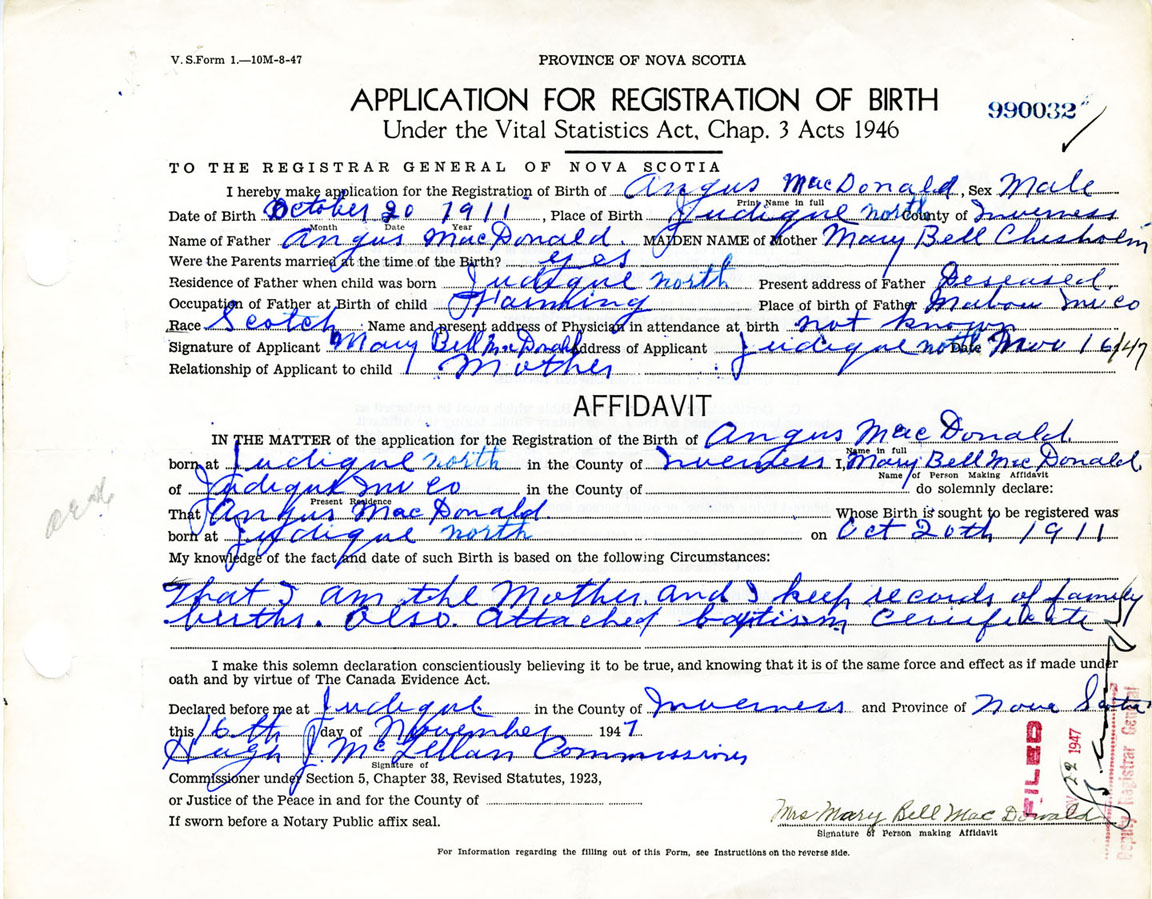 V. S. Form 1.—10M-8-47
PROVINCE OF NOVA SCOTIA
APPLICATION FOR REGISTRATION OF BIRTH
990032
Under the Vital Statistics Act, Chap. 3 Acts 1946
TO THE REGISTRAR GENERAL OF NOVA SCOTIA
I hereby make application for the Registration of Birth of Angus MacDonald, Sex Male
Print Name in full
Date of Birth October 20 1911, Place of Birth Judique north County of Inverness
Month Date Year
Name of Father Angus MacDonald. MAIDEN NAME of Mother Mary Bell Chesholm
Were the Parents married at the time of the Birth? yes
Residence of Father when child was born Judique north Present address of Father Deseased.
Occupation of Father at Birth of child Farming Place of birth of Father Mabou Inv co
Race Scotch Name and present address of Physician in attendance at birth not known
Signature of Applicant Mary Bell MacDonald Address of Applicant Judique north Date Nov 16/47
Relationship of Applicant to child Mother
AFFIDAVIT
IN THE MATTER of the application for the Registration of the Birth of Angus MacDonald.
Name in full
born at Judique north in the County of Inverness I, Mary Bell MacDonald.
Name of Person Making Affidavit
of Judique Inv co in the County of do solemnly declare:
Present Residence
That Angus MacDonald. Whose Birth is sought to be registered was
born at Judique north on Oct 20th 1911
My knowledge of the fact and date of such Birth is based on the following Circumstances:
That I am the Mother. and I keep records of family
births. Also. Attached baptism Cerificate
I make this solemn declaration conscientiously believing it to be true, and knowing that it is of the same force and effect as if made under
oath and by virtue of The Canada Evidence Act.
Declared before me at Judique in the County of Inverness and Province of Nova Scotia
this 16th day of November 1947
Hugh J McLellan Commissioner
Signature of
Commissioner under Section 5, Chapter 38, Revised Statutes, 1923,
or Justice of the Peace in and for the County of
If sworn before a Notary Public affix seal.
Mrs Mary Bell MacDonald
Signature of Person making Affidavit
FILED
NOV 22 1947
Deputy Registrar General
For Information regarding the filling out of this Form, see Instructions on the reverse side.